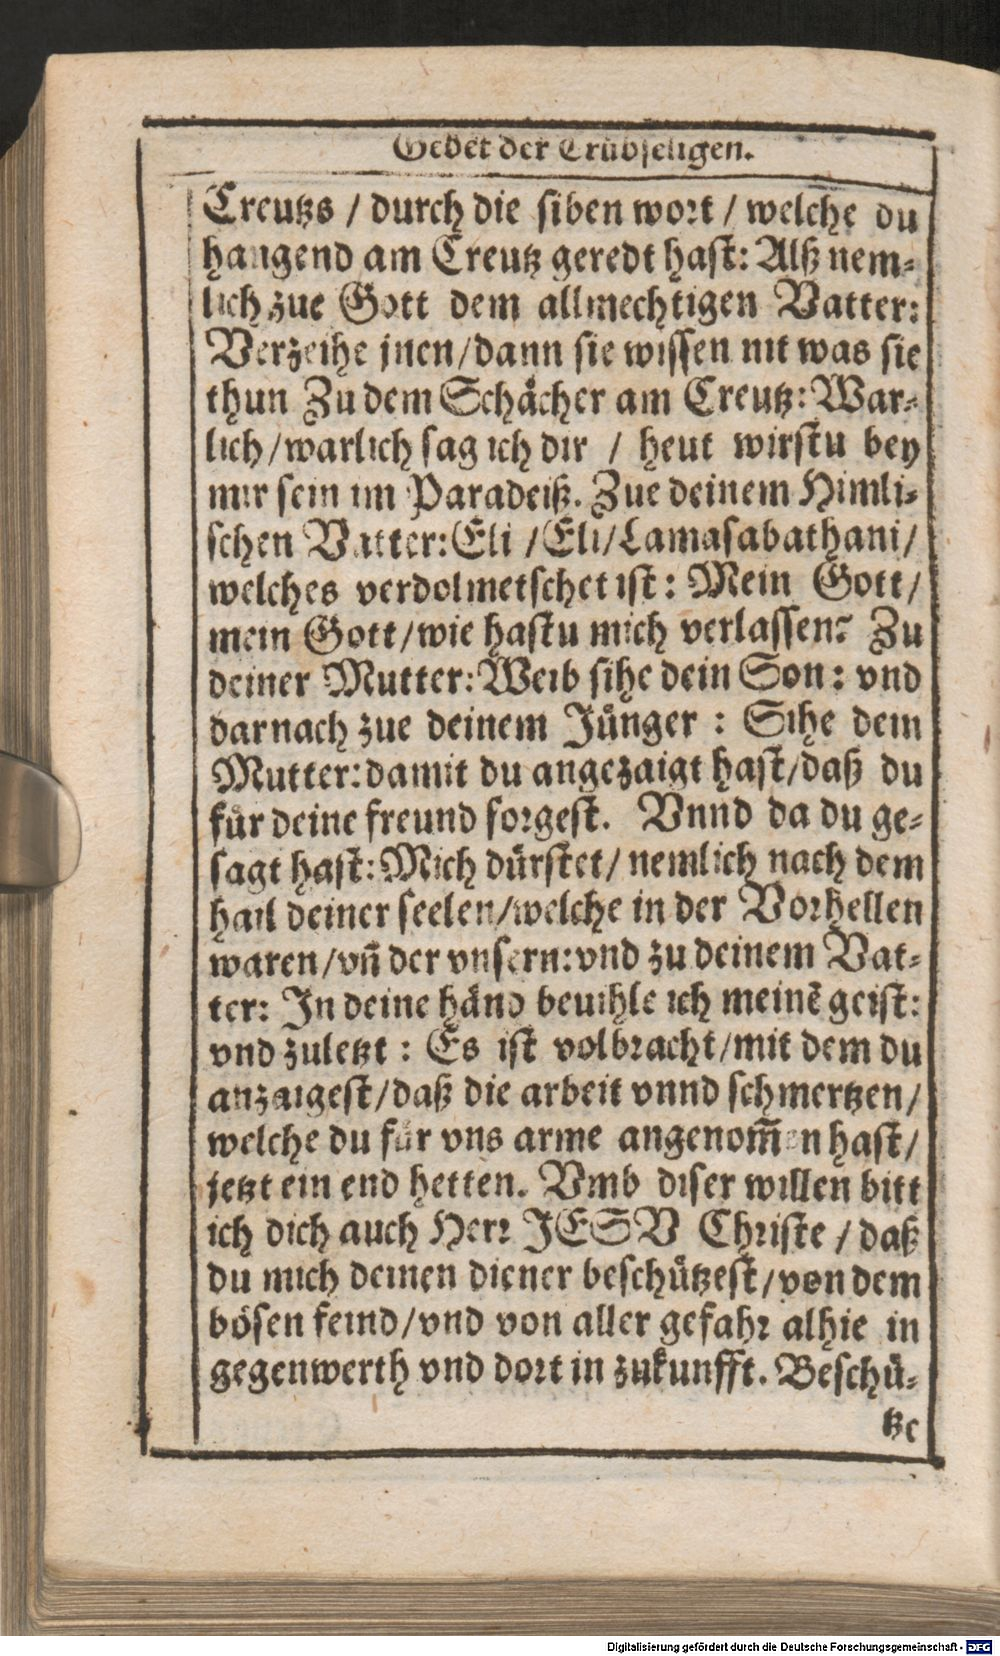 Gebet der Trübseligen.
Creutzs / durch die siben wort / welche du
hangend am Creutz geredt hast: Alß nem-
lich zue Gott dem allmechtigen Vatter:
Verzeihe jnen/dann sie wissen nit was sie
thun Zu dem Schächer am Creutz: War-
lich/warlich sag ich dir / heut wirstu bey
mir sein im Paradeiß. Zue deinem Himli-
schen Vatter: Eli /Eli/Lamasabathani/
welches verdolmetschet ist: Mein Gott/
mein Gott/wie hastu mich verlassen? Zu
deiner Mutter: Weib sihe dein Son: vnd
darnach zue deinem Jünger : Sihe dein
Mutter: damit du angezaigt hast/daß du
für deine freund sorgest. Vnnd da du ge-
sagt hast: Mich dürstet/ nemlich nach dem
hail deiner seelen/welche in der Vorhellen
waren/vn̄ der vnsern: vnd zu deinem Vat-
ter: In deine händ beuihle ich meinē geist:
vnd zuletzt : Es ist volbracht/mit dem du
anzaigest/daß die arbeit vnnd schmertzen/
welche du für vns arme angenom̄en hast/
jetzt ein end hetten. Vmb diser willen bitt
ich dich auch Herr JESV Christe / daß
du mich deinen diener beschützest/von dem
bösen feind/vnd von aller gefahr alhie in
gegenwerth vnd dort in zukunfft. Beschü-
tze
Digitalisierung gefördert durch die Deutsche Forschungsgemeinschaft - DFG